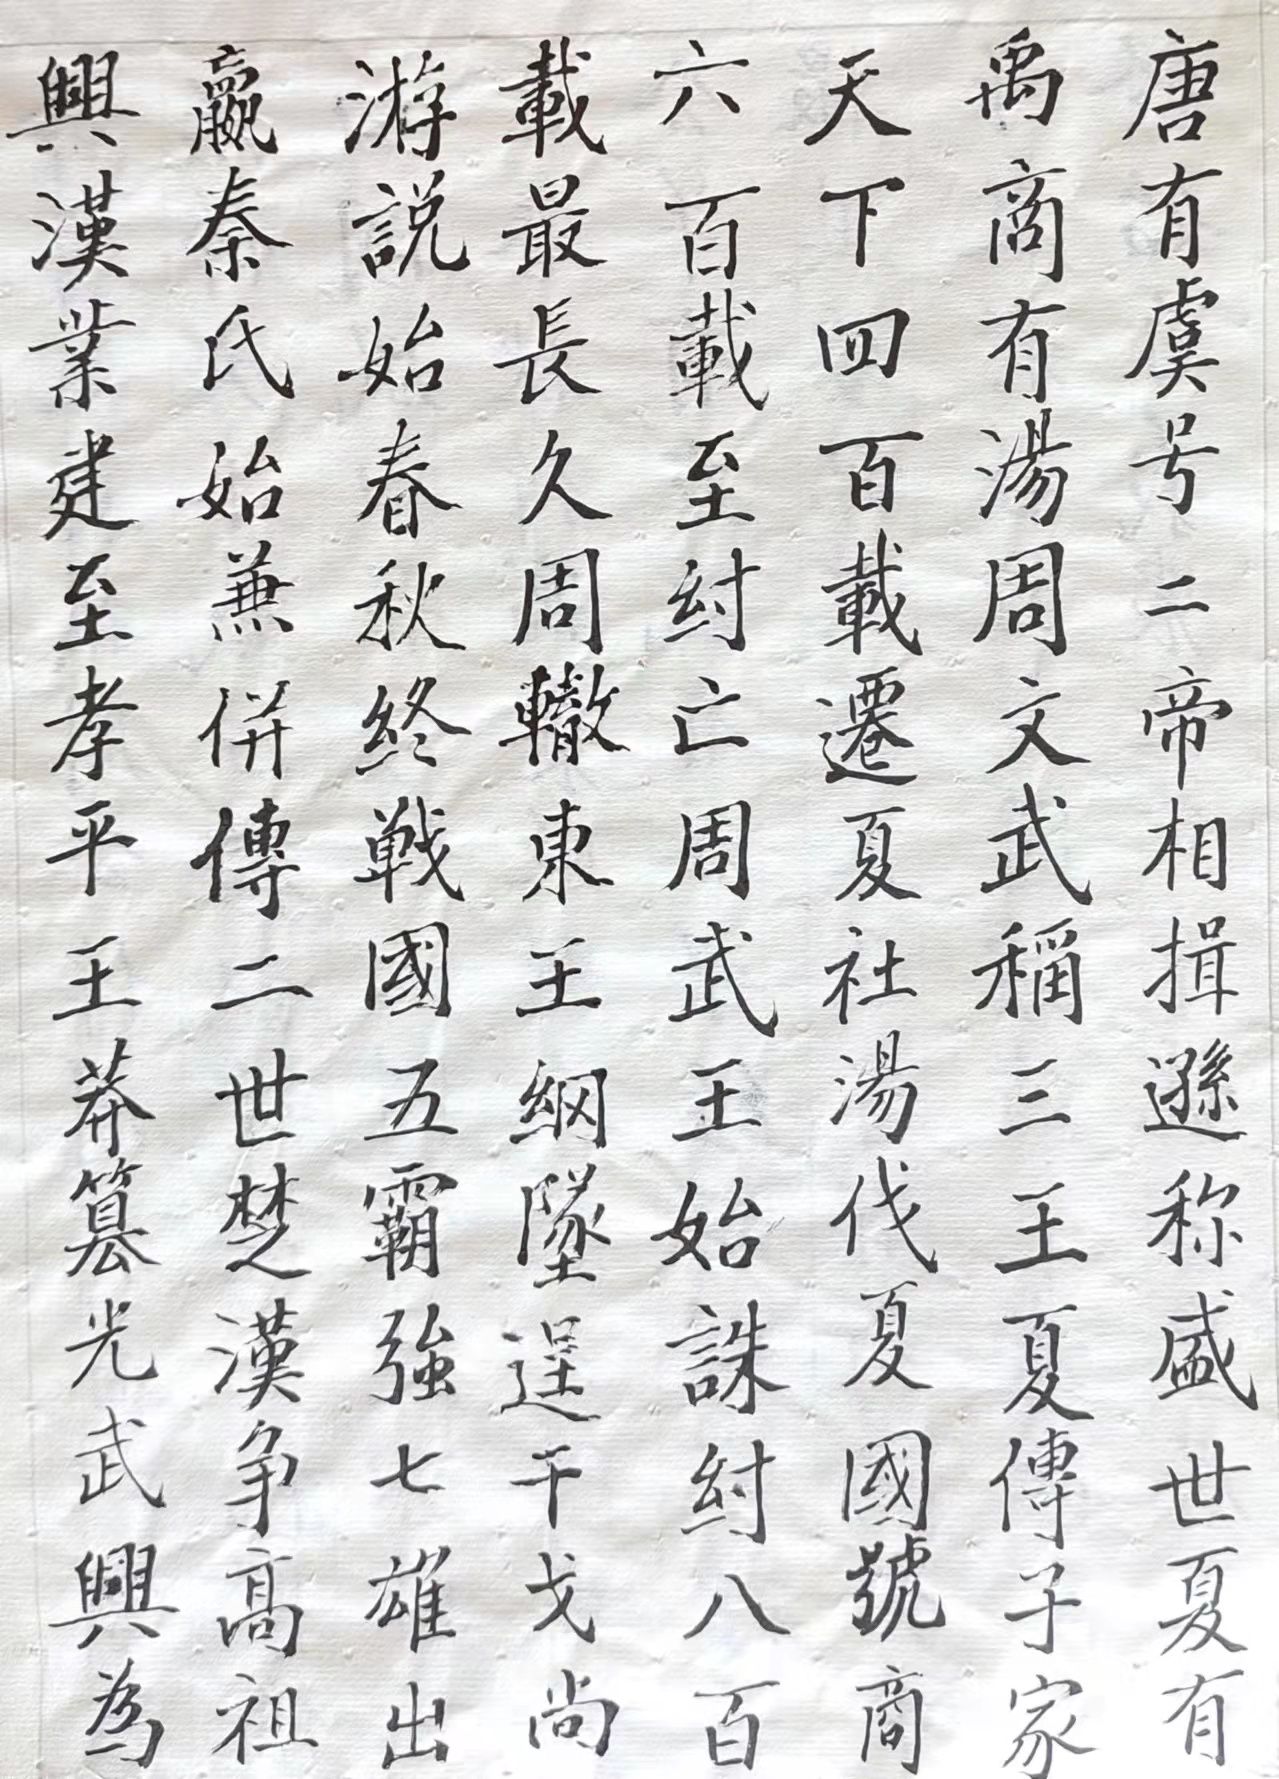 唐有虞号二帝相揖遜称盛世夏有
禹商有湯周文武稱三王夏傳子家
天下四百載遷夏社湯伐夏國號商
六百載至紂亡周武王始誅紂八百
載最長久周轍東王綱墜逞干戈尚
游説始春秋終戦國五霸強七雄出
嬴秦氏始兼併傳二世楚漢争高祖
興漢業建至孝平王莽篡光武興為